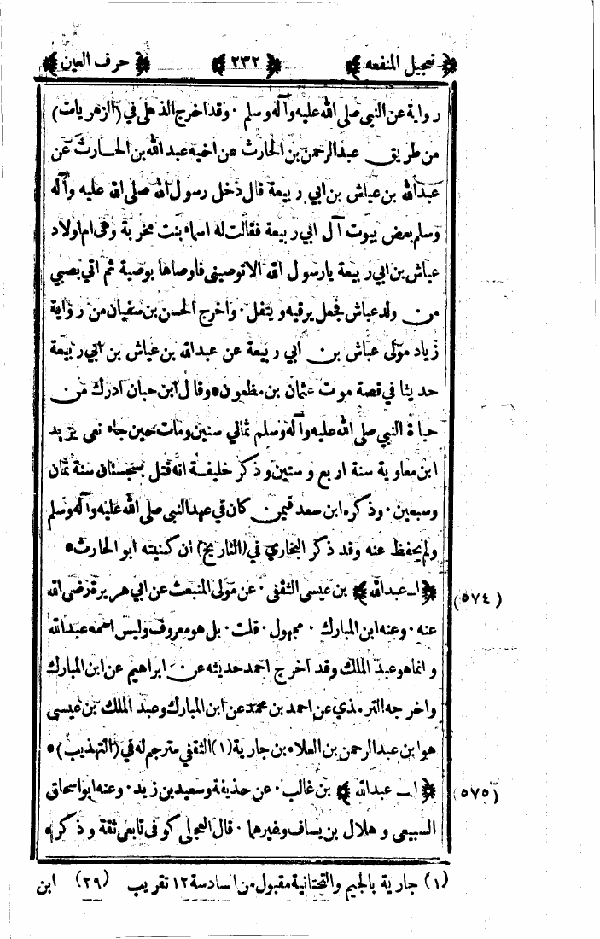 ﴿ تعجيل المنفعه ﴾ ﴿ ٢٣٢ ﴾ ﴿ حرف العين ﴾
رواية عن النبى صلى الله عليه وآله وسلم ٠ وقد اخرج الذهلى فى (الزهريات)
من طريق عبدالرحمن بن الحارث عن اخيه عبدالله بن الحارث عن
عبدالله بن عياش بن ابى ربيعة قال دخل رسول الله صلى الله عليه وآله
وسلم بعض بيوت آل ابى ربيعة فقالت له اسماء بنت مخربة وهى ام اولاد
عياش بن ابى ربيعة يارسول الله الاتوصينى فاوصاها بوصية ثم اتى بصبى
من ولد عياش فجعل يرقيه ويتفل ٠ واخرج الحسن بن سفيان من رواية
زياد مولى عياش بن ابى ربيعة عن عبدالله بن عياش بن ابى ربيعة
حديثا فى قصة موت عثمان بن مظعون ٠ وقال ابن حبان ادرك من
حياة النبى صلى الله عليه وآله وسلم ثمانى سنين ومات حين جاء نعى يزيد
ابن معاوية سنة اربع وستين وذكر خليفة انه قتل بسجستان سنة ثمان
وسبعين ٠ وذكره ابن سعد فيمن كان فى عهد النبى صلى الله عليه وآله وسلم
ولم يحفظ عنه وقد ذكر البخارى فى (التاريخ) ان كنيته ابو الحارث ٠
(٥٧٤) ﴿ ا ـ عبدالله ﴾ بن عيسى الثقفى ٠ عن مولى المنبعث عن ابى هريرة رضى الله
عنه ٠ وعنه ابن المبارك ٠ مجهول ٠ قلت ٠ بل هو معروف وليس اسمه عبدالله
وانما هو عبد الملك وقد اخرج احمد حديثه عن ابراهيم عن ابن المبارك
واخرجه الترمذي عن احمد بن محمد عن ابن المبارك وعبد الملك بن عيسى
هو ابن عبدالرحمن بن العلاء بن جارية (١) الثقفى مترجم له فى (التهذيب) ٠
(٥٧٥) ﴿ ا ـ عبدالله ﴾ بن غالب ٠ عن حذيفة وسعيد بن زيد ٠ وعنه ابو اسحاق
السبيعى وهلال بن يساف وغيرهما ٠ قال العجلى كوفى تابعى ثقة وذكره
(١) جارية بالجيم والتحتانية مقبول من السادسة ١٢ تقريب (٢٩) ابن